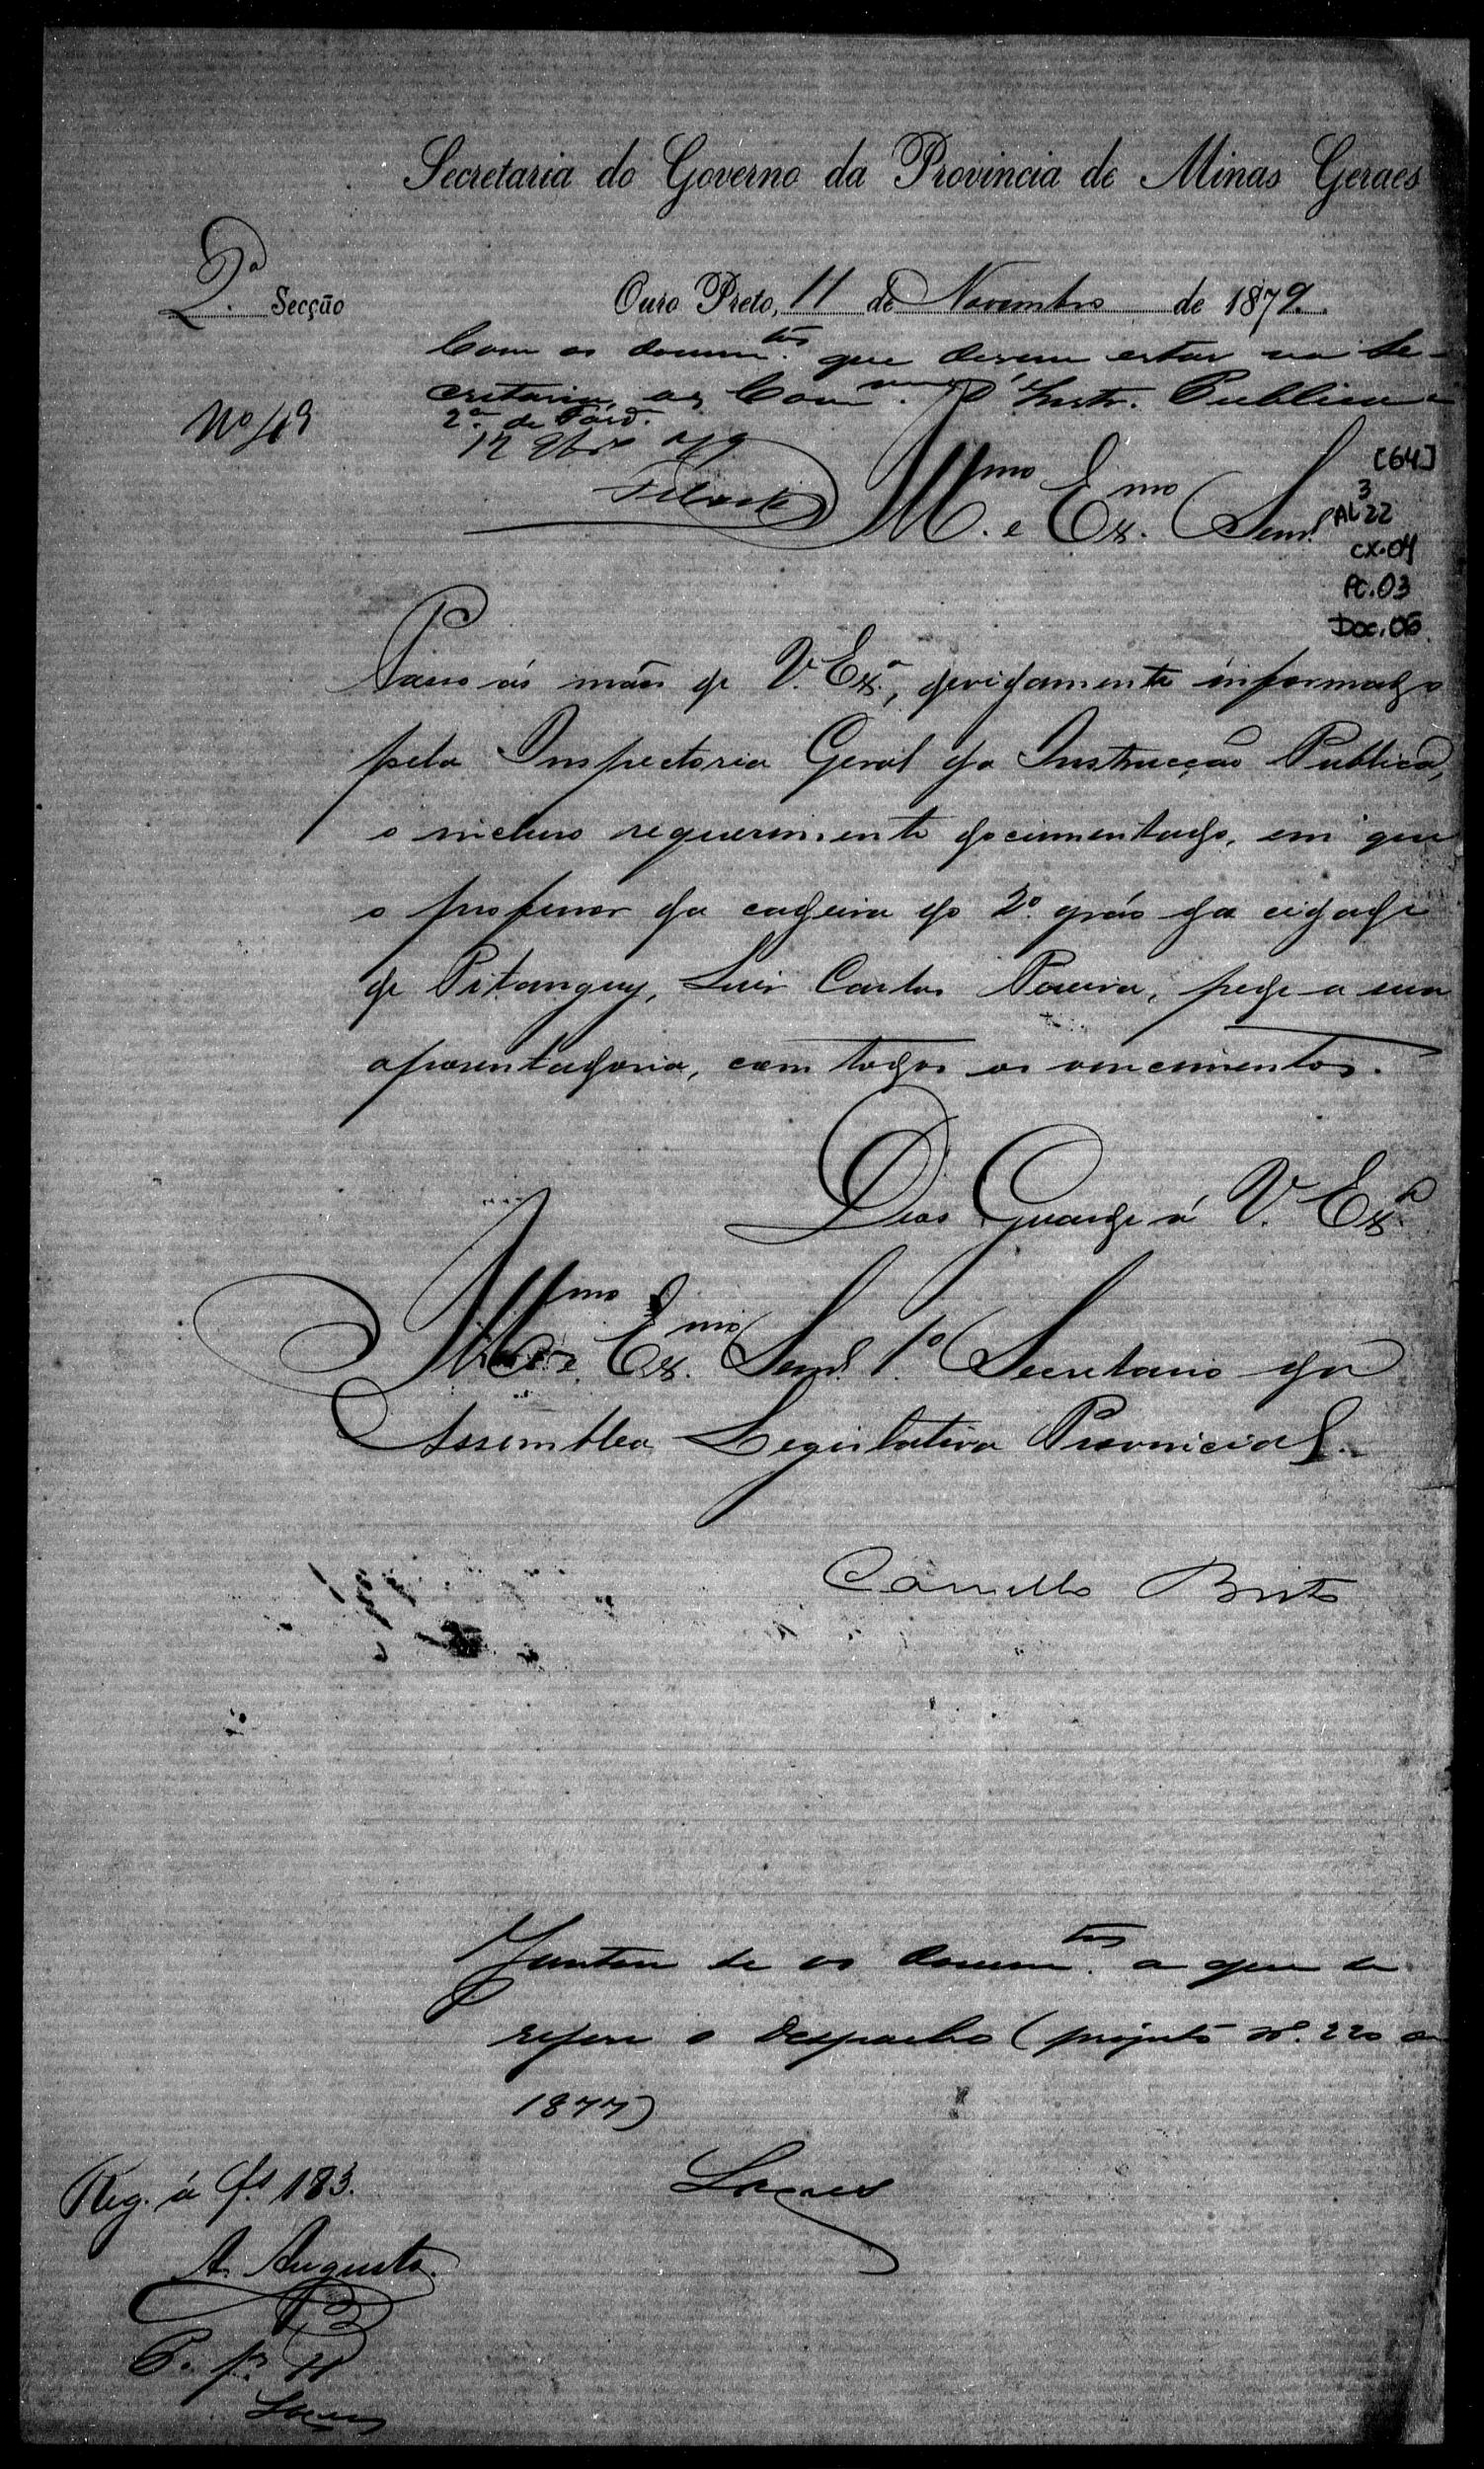 Secretaria do Governo da Provincia de Minas Geraes
2.ª Secção
Ouro Preto, 11 de Novembro de 1879.
Com os docum.tos que devem estar na Se-
cretaria, as Com.  d'Instr. Publica e
2.ª de Faz.
Nº 49
12 9br. 79
[64]
3
AL 22
CX.04
PC.03
Doc.06
Illmo. e Exmo. Senr.
Passo ás mãos de V. Exª., devidamente informado
pela Inspectoria Geral da Instrucção Publica,
o incluso requerimento documentado, em que
o professor da cadeira do 2º. gráo da cidade
de Pitanguy, Luiz Carlos Pereira, pede a sua
aposentadoria, com todos os vencimentos.
Deos Guarde á V. Exª
Illmo. e Exmo. Senr. 1º Secretario da
Assemblea Legislativa Provincial.
Camillo Brito
Juntou se os docum.tos a que se
refere o despacho (projecto nº. 220 de
1877)
Reg. á fs. 183.
A. Augusto.